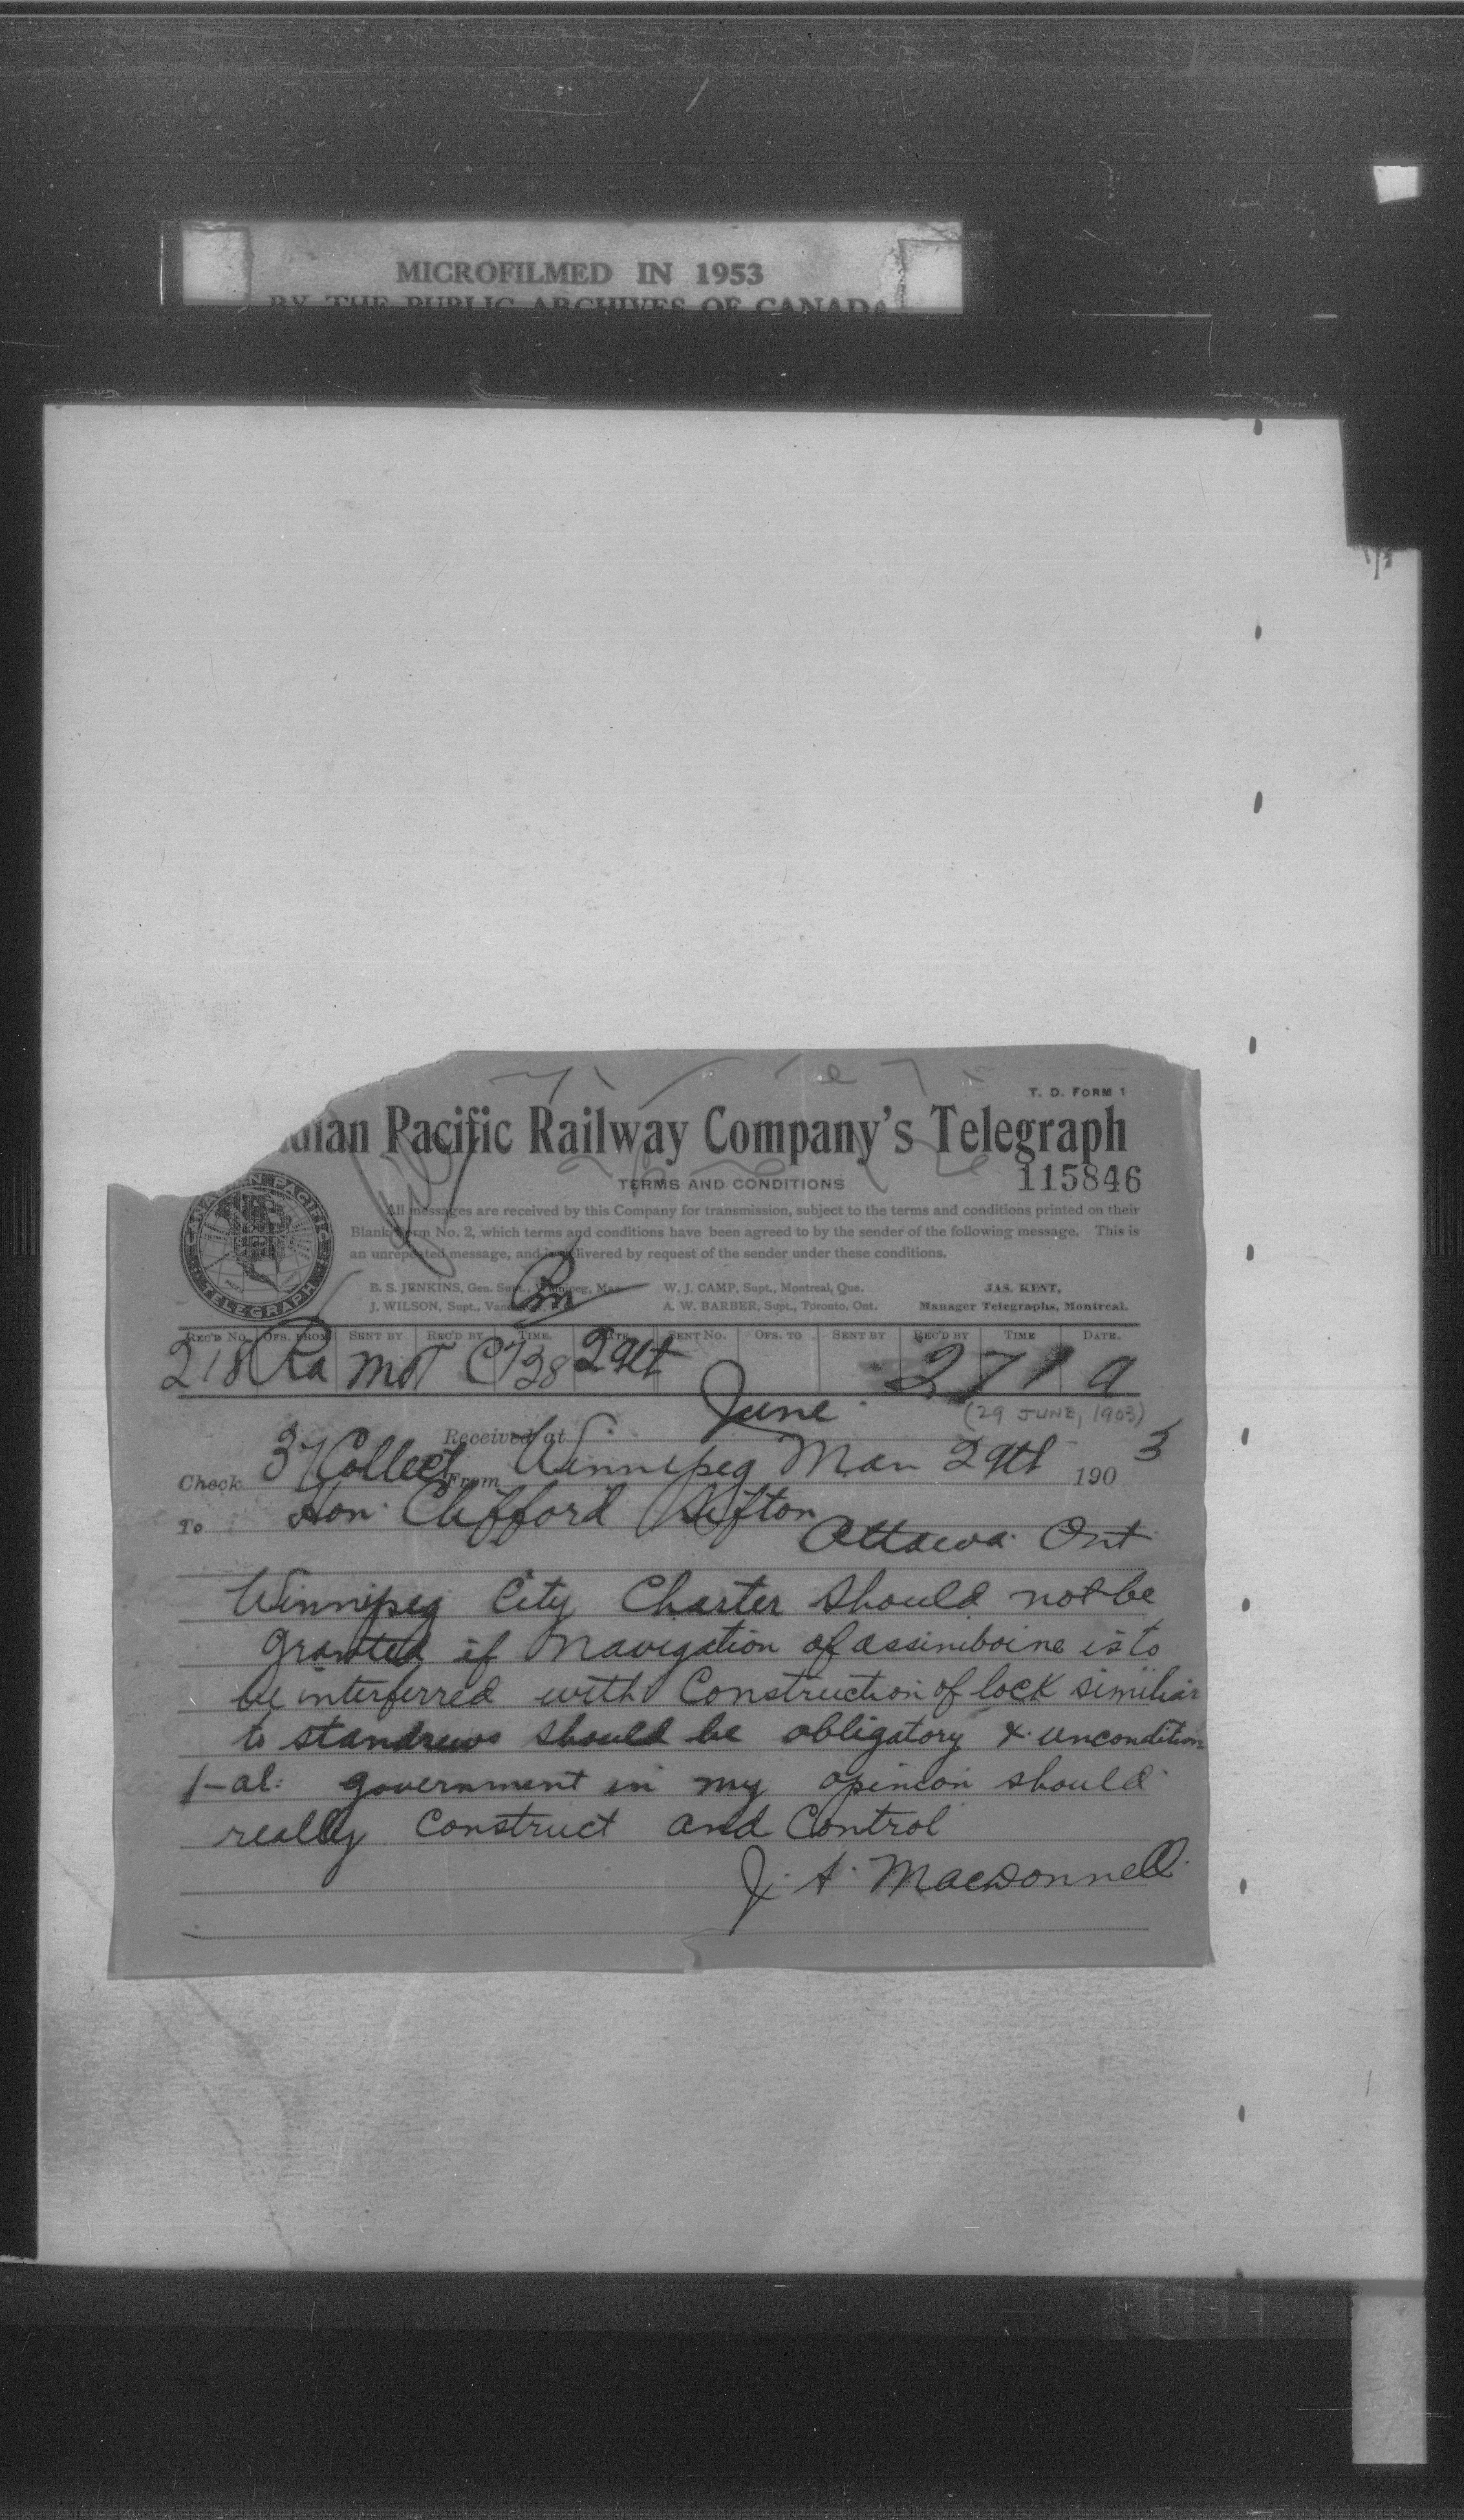 MICROFILMED IN 1953
BY THE PUBLIC ARCHIVES OF CANADA
T. D. FORM 1
dian Pacific Railway Company's Telegraph
TERMS AND CONDITIONS
115846
CANADIAN PACIFIC
TELEGRAPH
All messages are received by this Company for transmission, subject to the terms and conditions printed on their
Blank Form No. 2, which terms and conditions have been agreed to by the sender of the following message. This is
an unrepeated message, and is delivered by request of the sender under these conditions.
B. S. JENKINS, Gen. Supt., Winnipeg, Man. W. J. CAMP, Supt., Montreal, Que. JAS. KENT,
J. WILSON, Supt., A. W. BARBER, Supt., Toronto, Ont. Manager Telegraphs, Montreal.
REC'D No. OFS. FROM SENT BY REC'D BY TIME. DATE. SENT No. OFS. TO SENT BY REC'D BY TIME DATE.
218 Ra 29th 271 a
June
(29 JUNE, 1903)
Received at
Check 37 Collect From Winnipeg Man 29th 1903
To Hon. Clifford Sifton
Ottawa Ont
Winnipeg City Charter should not be
granted if navigation of assiniboine is to
be interferred with Construction of lock similiar
to standrews should be obligatory & uncondition
-al. government in my opinion should
really construct and control
J. A. Macdonnell